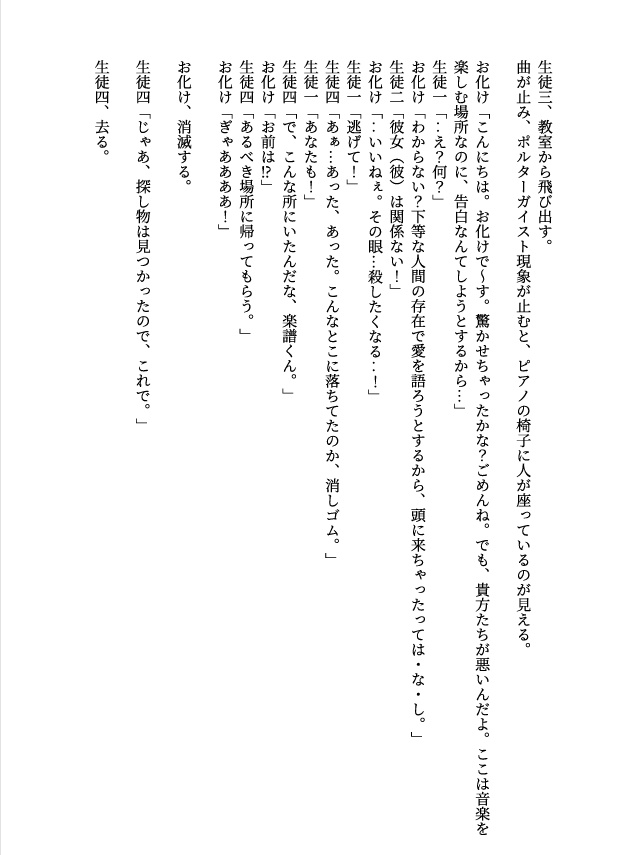 生徒三、教室から飛び出す。
曲が止み、ポルターガイスト現象が止むと、ピアノの椅子に人が座っているのが見える。
お化け「こんにちは。お化けで〜す。驚かせちゃったかな？ごめんね。でも、貴方たちが悪いんだよ。ここは音楽を
楽しむ場所なのに、告白なんてしようとするから…」
生徒一「‥え？何？」
お化け「わからない？下等な人間の存在で愛を語ろうとするから、頭に来ちゃったっては・な・し。」
生徒二「彼女（彼）は関係ない！」
お化け「‥いいねぇ。その眼…殺したくなる‥！」
生徒一「逃げて！」
生徒四「あぁ…あった、あった。こんなとこに落ちてたのか、消しゴム。」
生徒一「あなたも！」
生徒四「で、こんな所にいたんだな、楽譜くん。」
お化け「お前は⁉」
生徒四「あるべき場所に帰ってもらう。」
お化け「ぎゃああああ！」
お化け、消滅する。
生徒四「じゃあ、探し物は見つかったので、これで。」
生徒四、去る。